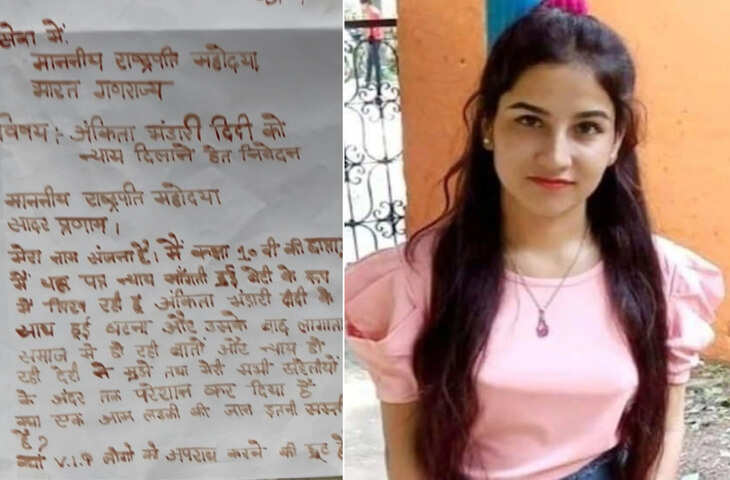 सेवा में,
माननीय राष्ट्रपति महोदया,
भारत गणराज्य
विषय: अंकिता भंडारी दिदी को
न्याय दिलाने हेतु निवेदन
माननीय राष्ट्रपति महोदया
सादर प्रणाम।
मेरा नाम संजना है। मैं कक्षा 10 वी की
मैं यह पत्र न्याय माँगती हुई बेटी के रूप
में लिख रही हूं अंकिता भंडारी दीदी के
साथ हुई घटना और उसके बाद लगातार
समाज में हो रही बातों और न्याय हो
रही देरी ने मुझे तथा मेरी सभी सहेलीयों
के अंदर तक परेशान कर दिया है
क्या एक आम लड़की की जान इतनी सस्ती
है?
क्या V.I.P लोगों को अपराध करने की छूट है